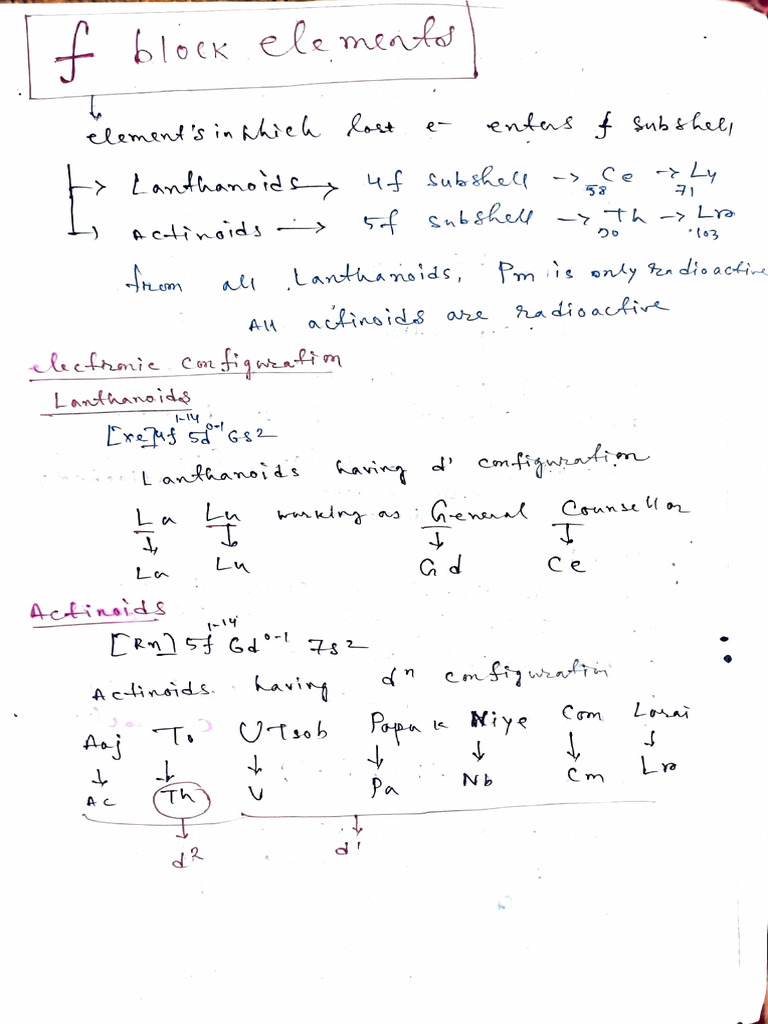 f block elements
element's in which last e- enters f subshell
→ Lanthanoids → 4f subshell → 58Ce → Lu 71
→ Actinoids → 5f subshell → 90Th → Lr 103
from all Lanthanoids, Pm is only radioactive
All actinoids are radioactive
electronic configuration
Lanthanoids
[Xe]4f¹⁻¹⁴ 5d⁰⁻¹ 6s2
Lanthanoids having d' configuration
La Lu working as General Counsellor
↓ ↓ ↓ ↓
La Lu Gd Ce
Actinoids
[Rn] 5f¹⁻¹⁴ 6d⁰⁻¹ 7s2
Actinoids having dⁿ configuration
Aaj To UTsob Papu k Niye Com Lorai
↓ ↓ ↓ ↓ ↓ ↓ ↓
Ac Th U Pa Nb Cm Lr
↓ ↓
d2 d'